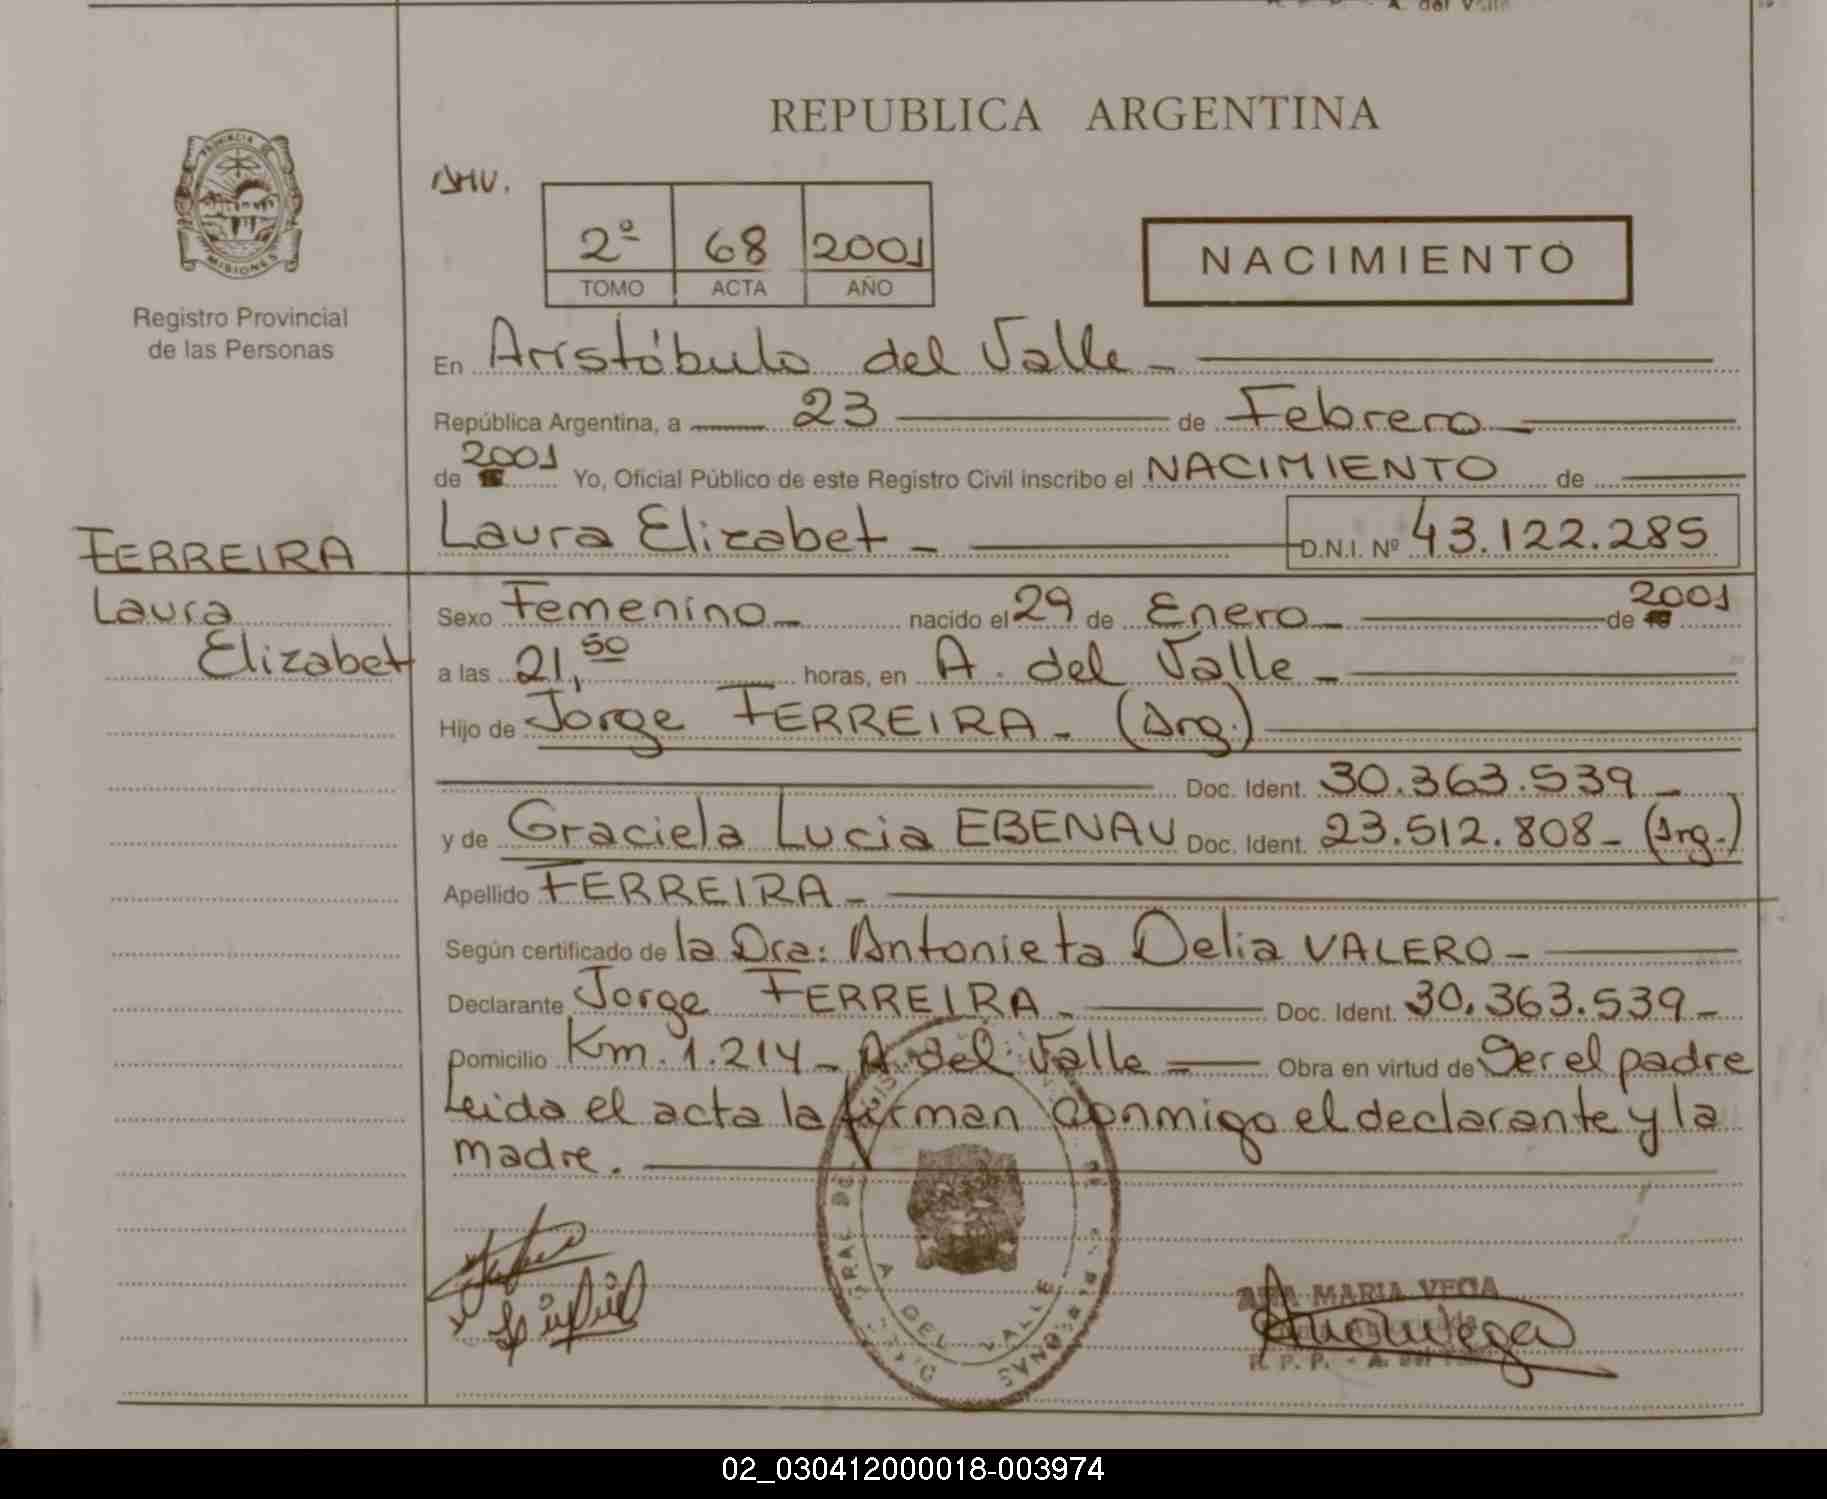 A. del Valle
REPUBLICA ARGENTINA
PROVINCIA DE
MISIONES
Registro Provincial
de las Personas
2º 68 2001
TOMO ACTA AÑO
NACIMIENTO
En Aristóbulo del Valle
República Argentina, a 23 de Febrero
de 2001 Yo, Oficial Público de este Registro Civil inscribo el NACIMIENTO de
FERREIRA
Laura
Elizabet
Laura Elizabet D.N.I. Nº 43.122.285
Sexo Femenino nacido el 29 de Enero de 2001
a las 21,50 horas, en A. del Valle
Hijo de Jorge FERREIRA (Arg.)
Doc. Ident. 30.363.539
y de Graciela Lucia EBENAU Doc. Ident. 23.512.808 (Arg.)
Apellido FERREIRA
Según certificado de la Dra: Antonieta Delia VALERO
Declarante Jorge FERREIRA Doc. Ident. 30.363.539
Domicilio Km. 1.214 A. del Valle Obra en virtud de Ser el padre
Leida el acta la firman conmigo el declarante y la
madre.
A. DEL VALLE
ANA MARIA VEGA
R. P. P. - A. del
02_030412000018-003974